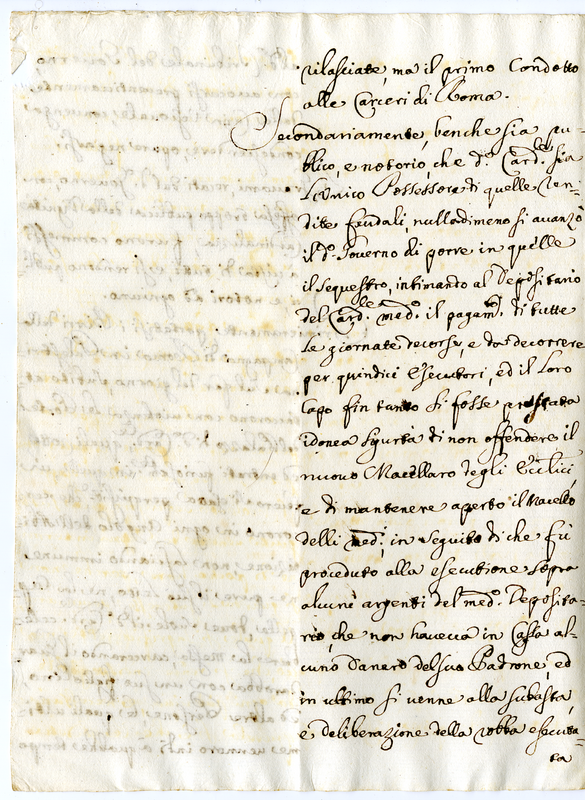 rilasciate, ma il primo Condotto
alle Carceri di Roma.
Secondariamente, benche sia pu-
blico, e notorio, che d.º Card.le sia
l'Unico Possessore di quelle ren-
dite feudali, nulladimeno si avanzò
il d.º Governo di porre in quelle
il sequestro, intimando al Depositario
del Card.le med.º il pagam.to di tutte
le giornate decorse, e da decorrere
per quindici Esecutori, ed il loro
Capo fin tanto si fosse prestata
idonea sigurtà di non offendere il
nuovo Macellaro degli
e di mantenere aperto il Macello
delli med.i, in seguito di che fù
proceduto alla esecutione sopra
alcuni argenti del med.º Deposita-
rio, che non haveva in Cassa al-
cuno danaro del suo Padrone, ed
in ultimo si venne alla subasta,
e deliberazione della robba esecuta-
ta